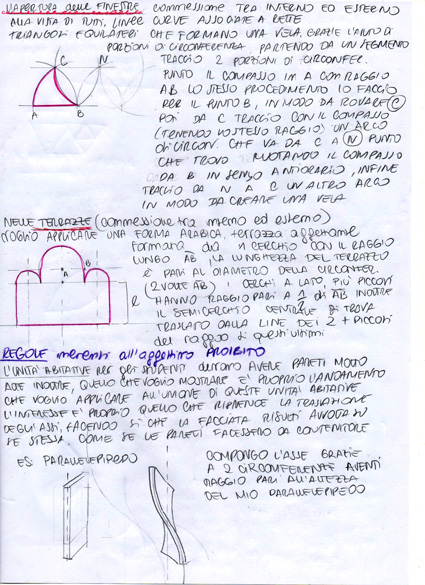 L'APERTURA delle FINESTRE connessione TRA INTERNO ED ESTERNO
ALLA VISTA DI TUTTI, LINEE CURVE ASSOCIATE A RETTE
TRIANGOLI EQUILATERI CHE FORMANO UNA VELA. GRAZIE L'AIUTO DI
PORZIONI DI CIRCONFERENZA, PARTENDO DA UN SEGMENTO
TRACCIO 2 PORZIONI DI CIRCONFER.
C N
PUNTO IL COMPASSO IN A CON RAGGIO
AB LO STESSO PROCEDIMENTO LO FACCIO
PER IL PUNTO B, IN MODO DA TROVARE C
POI DA C TRACCIO CON IL COMPASSO
A B
(TENENDO LO STESSO RAGGIO) UN ARCO
DI CIRCONF. CHE VA DA C A N PUNTO
CHE TROVO RUOTANDO IL COMPASSO
DA B IN SENSO ANTIORARIO, INFINE
TRACCIO DA N A C UN ALTRO ARCO
IN MODO DA CREARE UNA VELA
NELLE TERRAZZE (connessione tra interno ed esterno)
VOGLIO APPLICARE UNA FORMA ARABICA, terrazza
formata da CERCHIO CON IL RAGGIO
LUNGO AB, LA LUNGHEZZA DEL TERRAZZO
A B
È PARI AL DIAMETRO DELLA CIRCONFER.
(2 VOLTE AB) I CERCHI A LATO, PIÙ PICCOLI
R HANNO RAGGIO PARI A 1/2 di AB INOLTRE
IL SEMICERCHIO CENTRALE SI TROVA
TRASLATO DALLA LINE DEI 2 + PICCOLI
del raggio di quest'ultimi
REGOLE inerenti all'aggettivo PROIBITO
L'UNITÀ ABITATIVE per gli STUDENTI devono AVERE PARETI MOLTO
ALTE INOLTRE, QUELLO CHE VOGLIO MOSTRARE È PROPRIO L'ANDAMENTO
CHE VOGLIO APPLICARE ALL'UNIONE DI QUESTE UNITÀ ABITATIVE
L'INTERESSE È PROPRIO QUELLO CHE RIPRENDE LA TRASLAZIONE
DEGLI ASSI, FACENDO SÌ CHE LA FACCIATA RISULTI SU
SE STESSA, COME SE LE PARETI FACESSERO DA CONTENITORE
ES: PARALLELEPIPEDO
COMPONGO L'ASSE GRAZIE
A 2 CIRCONFERENZE AVENTI
RAGGIO PARI ALL'ALTEZZA
DEL MIO PARALLELEPIPEDO